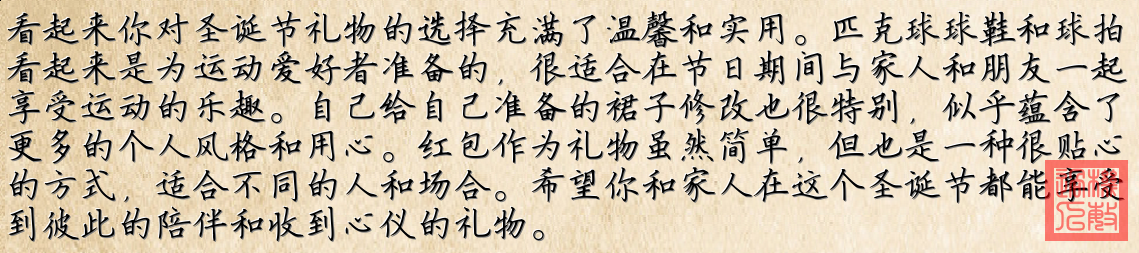 看起来你对圣诞节礼物的选择充满了温馨和实用。匹克球球鞋和球拍
看起来是为运动爱好者准备的，很适合在节日期间与家人和朋友一起
享受运动的乐趣。自己给自己准备的裙子修改也很特别，似乎蕴含了
更多的个人风格和用心。红包作为礼物虽然简单，但也是一种很贴心
的方式，适合不同的人和场合。希望你和家人在这个圣诞节都能享受
到彼此的陪伴和收到心仪的礼物。